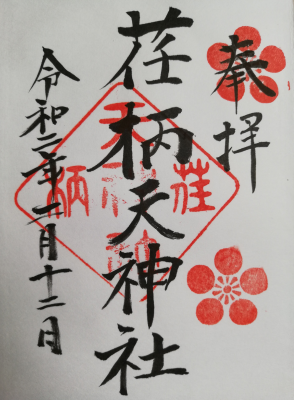 奉拝
荏柄天神社
令和二年二月十二日
荏
柄